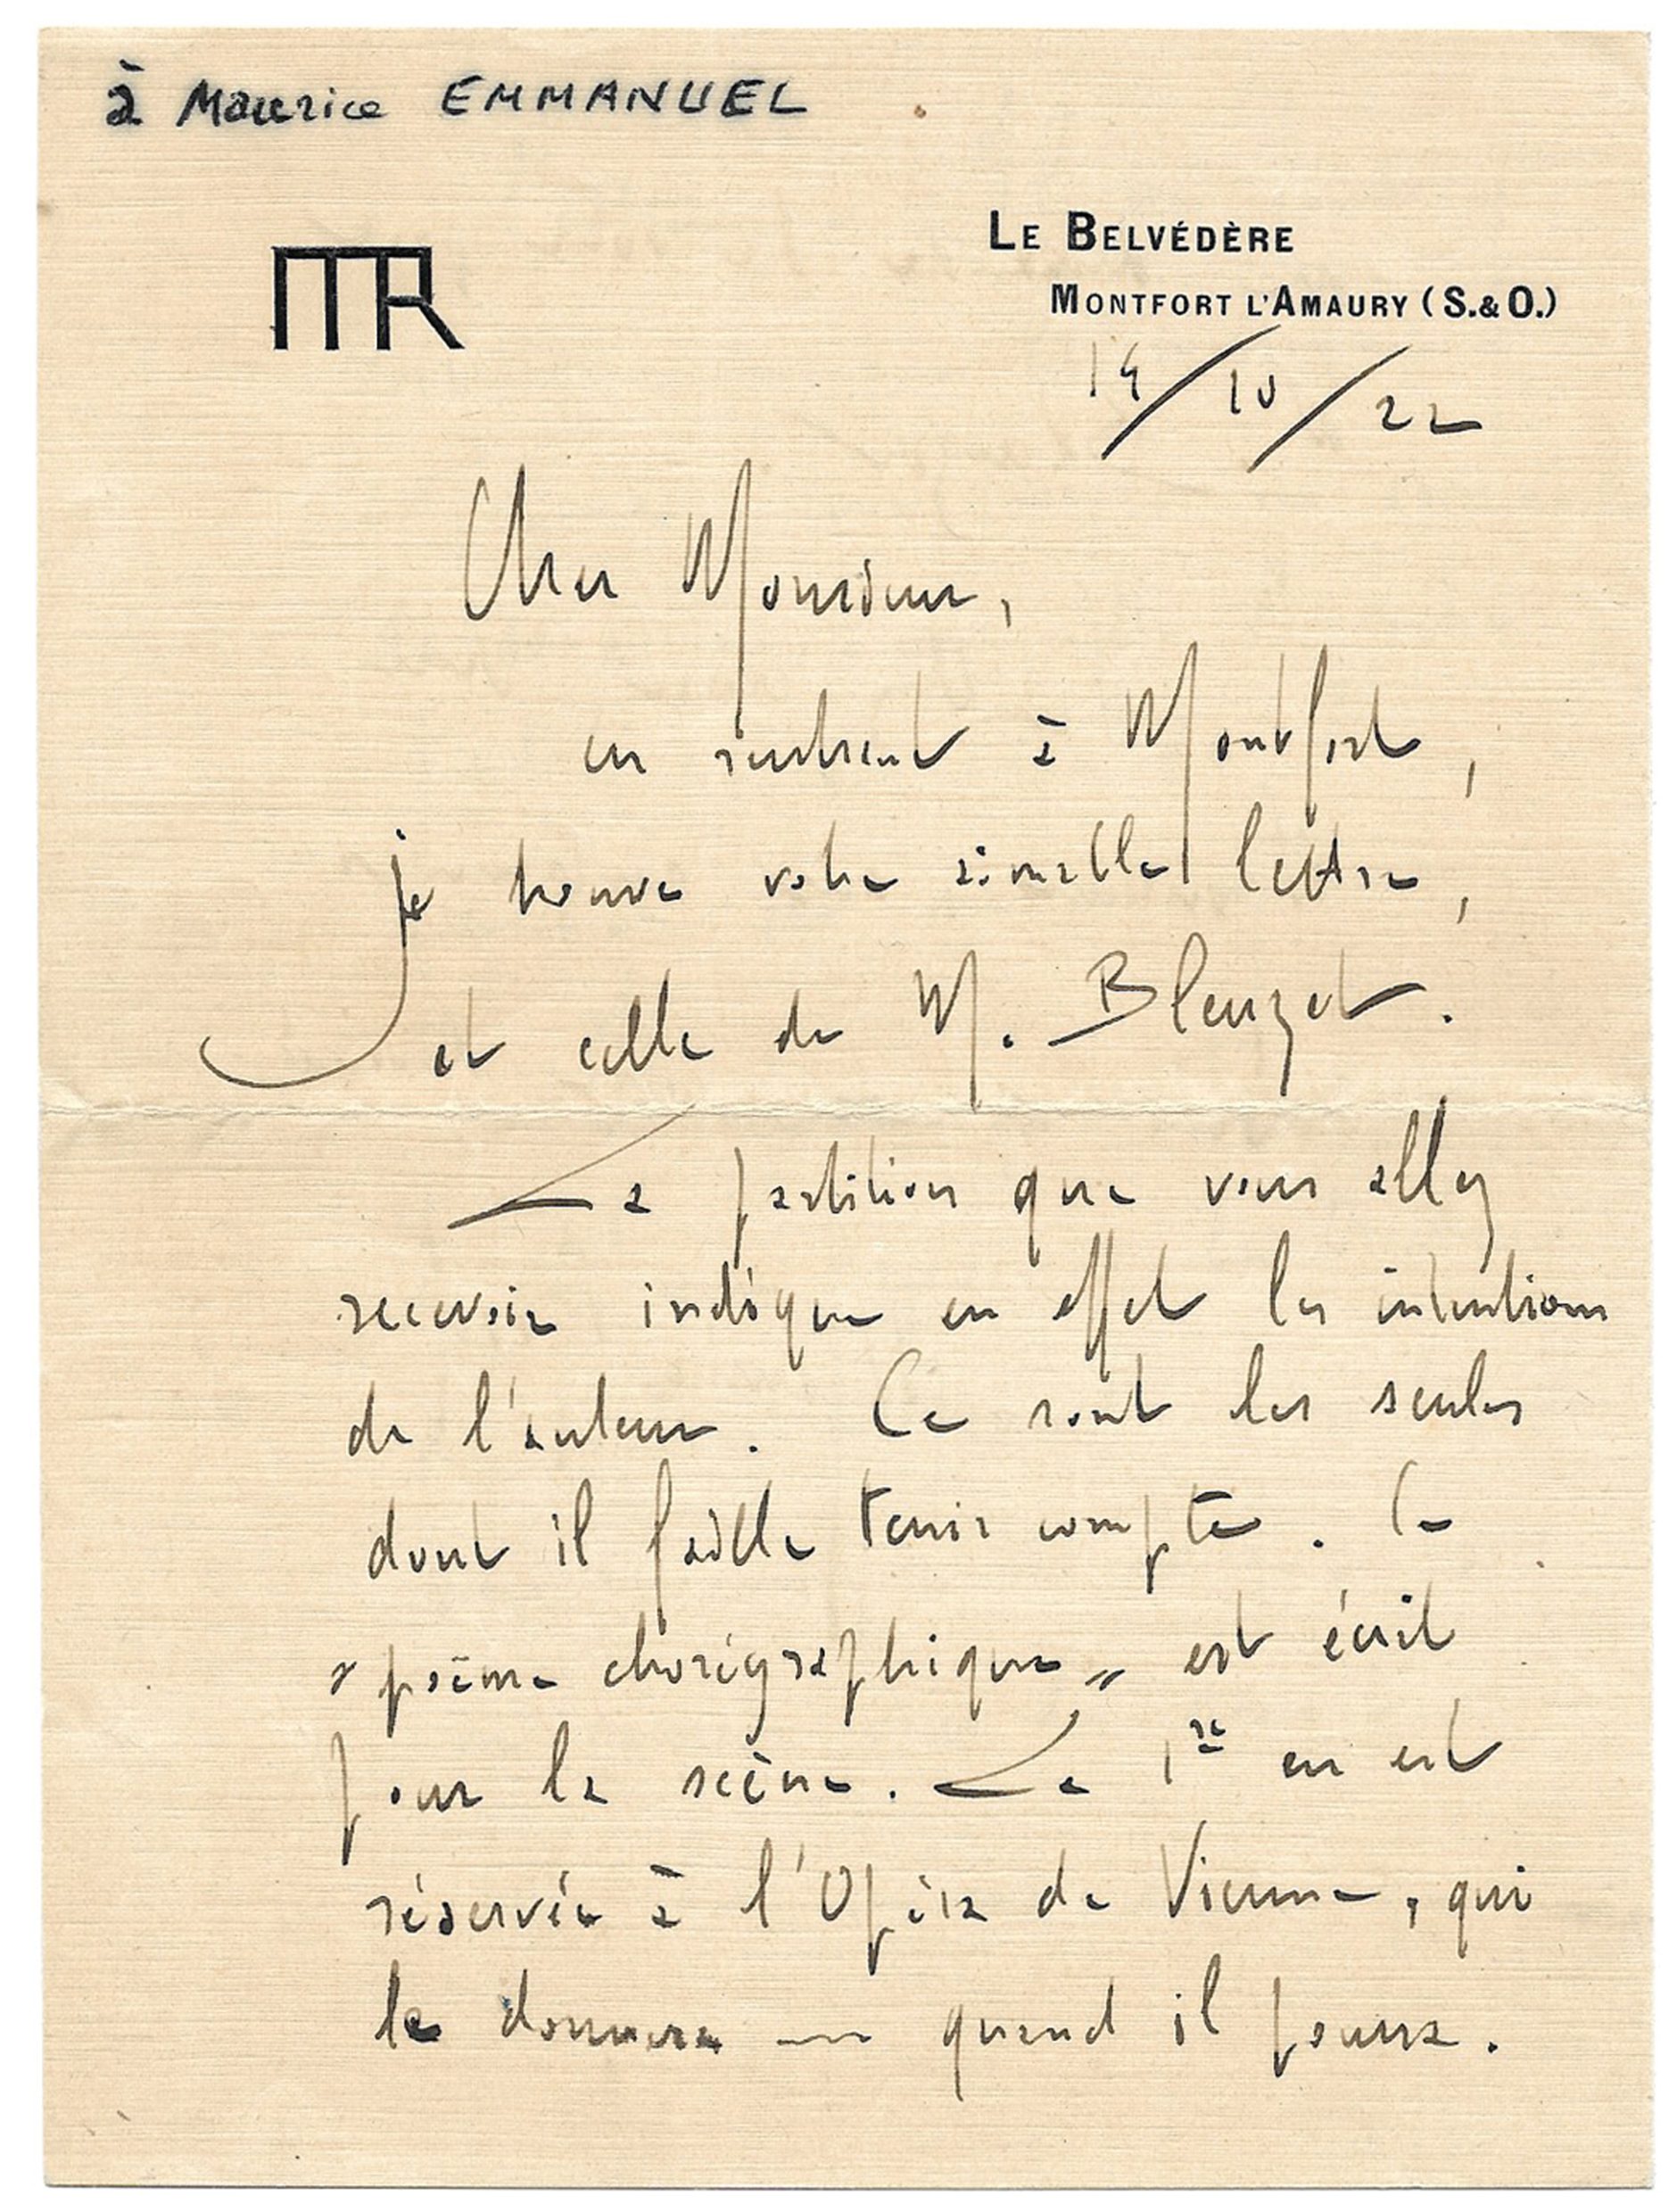 à Maurice EMMANUEL
MR
LE BELVÉDÈRE
MONTFORT L'AMAURY (S.&O.)
14/10/22
Cher Monsieur,
en rentrant à Montfort,
je trouve votre aimable lettre,
et celle de M. Bleuzet.
La partition que vous allez
recevoir indique en effet les intentions
de l'auteur. Ce sont les seules
dont il faille tenir compte. Ce
"poème chorégraphique" est écrit
pour la scène. La 1re en est
réservée à l'Opéra de Vienne, qui
la donnera — quand il pourra.